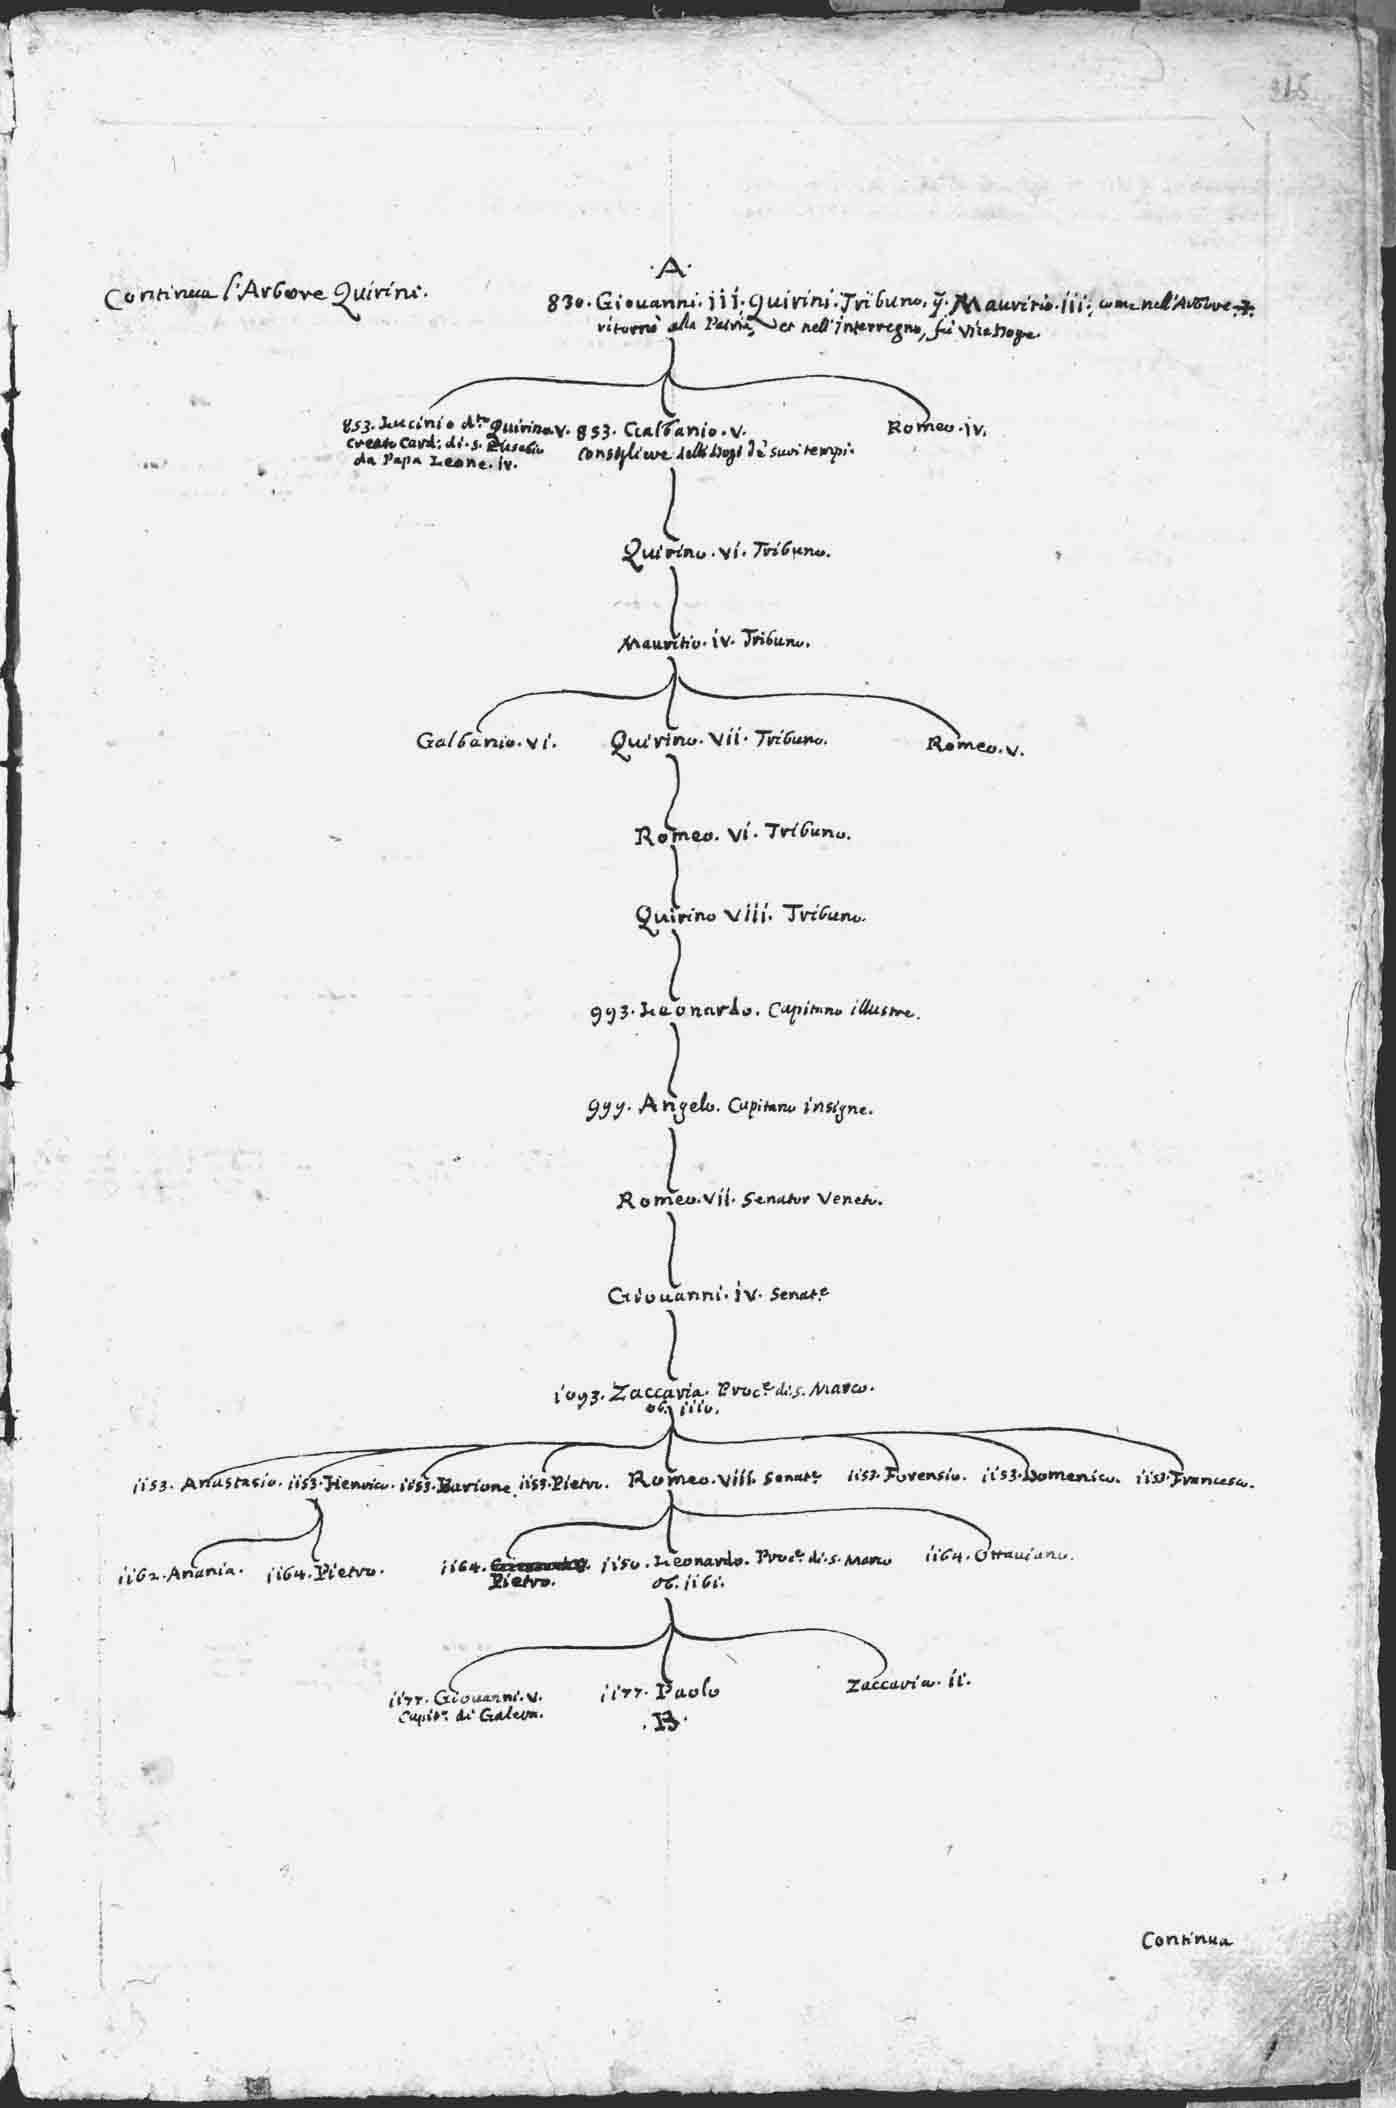 315
·A·
Continua l'Arbore Quirini.
830. Giouanni. iii. Quirini. Tribuno. q. Mauritio. iii., come nell'Arbore
ritornò alla Patria, et nell'interregno, fù Vice Doge
853. Lucinio d.to Quirino. v.
creato Card: di. s. Eusebio
da Papa Leone. iv.
853. Galbanio. v.
Consigliere delli Dogi de suoi tempi.
Romeo. iv.
Quirino. vi. Tribuno.
Mauritio. iv. Tribuno.
Galbanio. vi.
Quirino. vii. Tribuno.
Romeo. v.
Romeo. vi. Tribuno.
Quirino viii. Tribuno.
993. Leonardo. Capitano illustre.
999. Angelo. Capitano insigne.
Romeo. vii. Senator Veneto.
Giouanni. iv. Senat.e
1093. Zaccaria. Proc.e di. s. Marco.
ob. 1110.
1153. Anastasio. 1153. Henrico. 1153. Barione. 1153. Pietro. Romeo. viii. Senat.e 1153. Forensio. 1153. Domenico. 1153. Francesco.
1162. Anania.
1164. Pietro.
1164.
Pietro.
1150. Leonardo. Proc.e di. s. Marco
ob. 1161.
1164. Ottauiano.
1177. Giouanni. v.
Capit.o di Galera.
1177. Paolo
.B.
Zaccaria. ii.
Continua